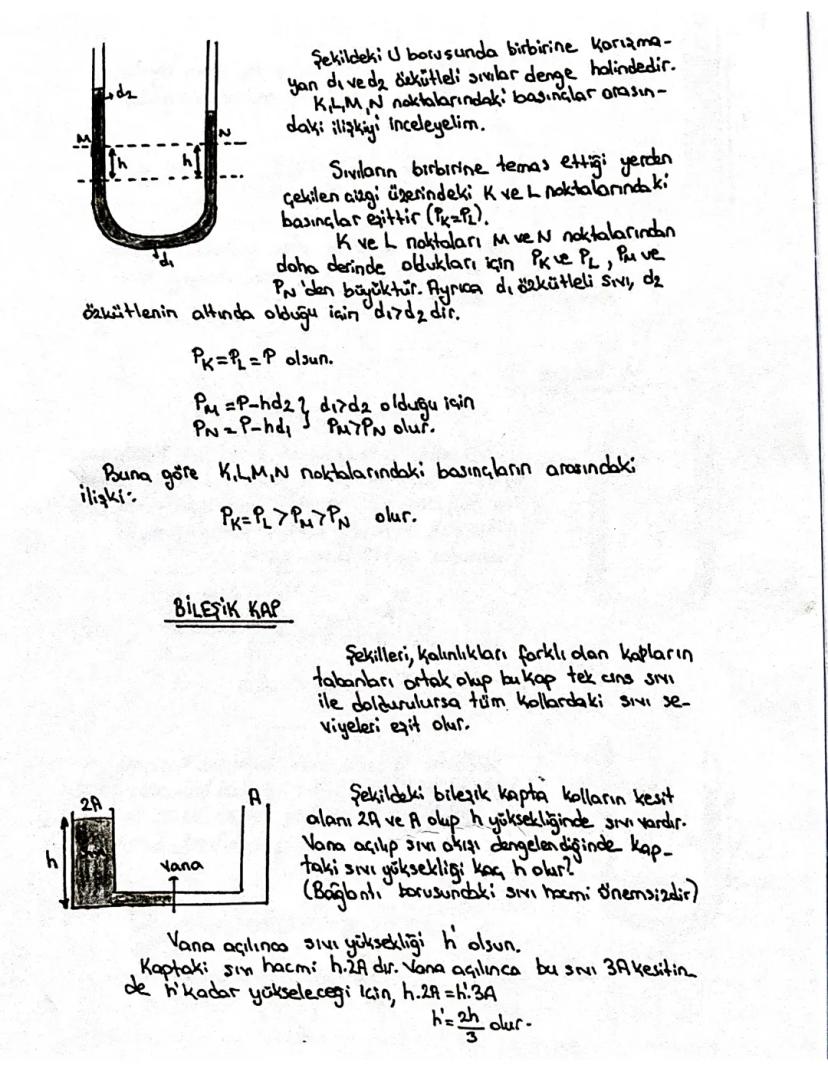 Şekildeki U borusunda birbirine karışma-
yan d₁ ve d₂ özkütleli sıvılar denge halindedir.
K,L,M,N noktalarındaki basınçlar arasın-
daki ilişkiyi inceleyelim.
d₂
M
N
h
h
d₁
Sıvıların birbirine temas ettiği yerden
çekilen çizgi üzerindeki K ve L noktalarındaki
basınçlar eşittir (P_K=P_L).
K ve L noktaları M ve N noktalarından
daha derinde oldukları için P_K ve P_L, P_M ve
P_N'den büyüktür. Ayrıca d₁ özkütleli sıvı, d₂
özkütlenin altında olduğu için d₁>d₂ dir.
P_K=P_L=P olsun.
P_M=P-hd₂ } d₁>d₂ olduğu için
P_N=P-hd₁ } P_M>P_N olur.
Buna göre K,L,M,N noktalarındaki basınçların arasındaki
ilişki:
P_K=P_L>P_M>P_N olur.
BİLEŞİK KAP
Şekilleri, kalınlıkları farklı olan kapların
tabanları ortak olup bu kap tek cins sıvı
ile doldurulursa tüm kollardaki sıvı se-
viyeleri eşit olur.
2A
A
h
vana
Şekildeki bileşik kapta kolların kesit
alanı 2A ve A olup h yüksekliğinde sıvı vardır.
Vana açılıp sıvı akışı dengelendiğinde kap-
taki sıvı yüksekliği kaç h olur?
(Bağlantı borusundaki sıvı hacmi önemsizdir)
Vana açılınca sıvı yüksekliği h' olsun.
Kaptaki sıvı hacmi h.2A dır. Vana açılınca bu sıvı 3A kesitin
de h' kadar yükseleceği için, h.2A=h'.3A
h'=2h/3 olur.